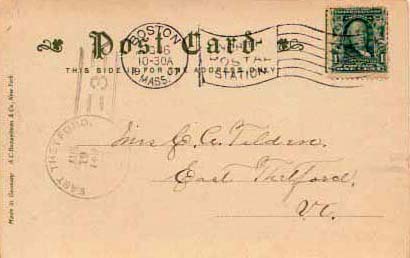 Post Card
THIS SIDE IS FOR THE ADDRESS ONLY
BOSTON
10-30A
19
MASS.
POSTAL
STATION
1
EAST THETFORD,
Mrs C. A. Tilden
East Thetford,
Vt.
Made in Germany A.C. Bosselman & Co., New York